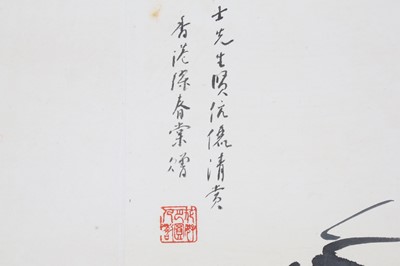 士先生賢伉儷清賞
香港徐春棠贈